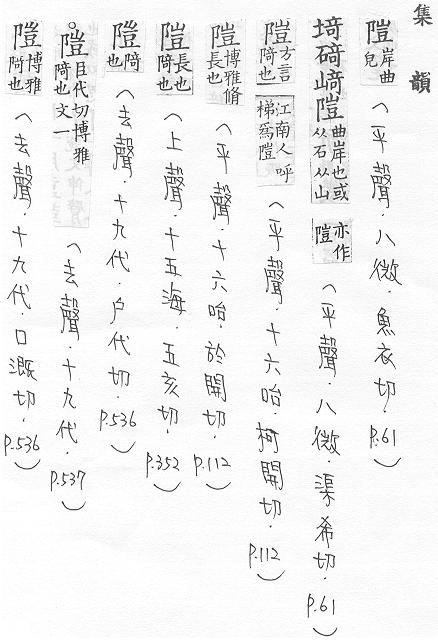 集韻
隑 岸曲皃 (平聲.八微.魚衣切.P.61)
埼碕崎隑 曲岸也或从石从山 亦作隑 (平聲.八微.渠希切.P.61)
隑 方言陭也 江南人呼梯為隑 (平聲.十六咍.柯開切.P.112)
隑 博雅脩長也 (平聲.十六咍.於開切.P.112)
隑 長也陭也 (上聲.十五海.五亥切.P.352)
隑 陭也 (去聲.十九代.戶代切.P.536)
。隑 巨代切博雅陭也文一 (去聲.十九代.P.537)
隑 博雅陭也 (去聲.十九代.口溉切.P.536)